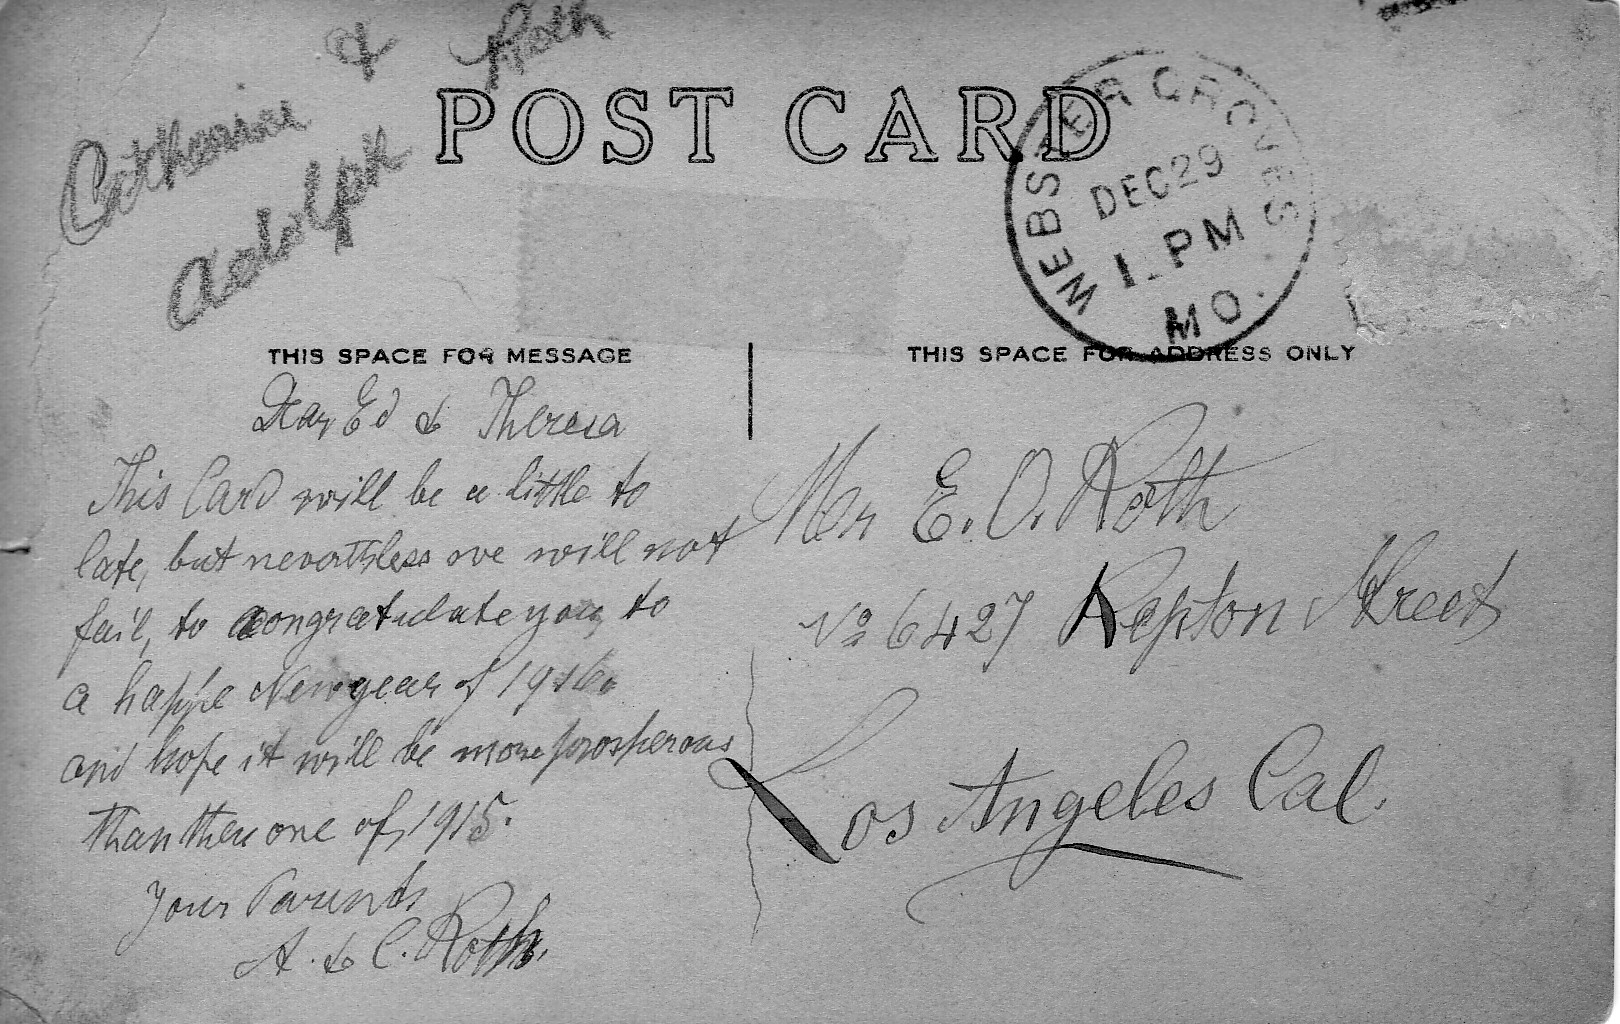 Catherine & Adolph Roth
POST CARD
WEBSTER GROVES
DEC 29
1 - PM
MO.
THIS SPACE FOR MESSAGE
Dear Ed & Theresa
This Card will be a little to
late, but neverthless we will not
fail, to congratulate you, to
a happe New year of 1916.
and hope it will be more prosperous
than then one of, 1915.
Your Parents
A. & C. Roth.
THIS SPACE FOR ADDRESS ONLY
Mr E. O. Roth
No 6427 Repton Street
Los Angeles Cal.